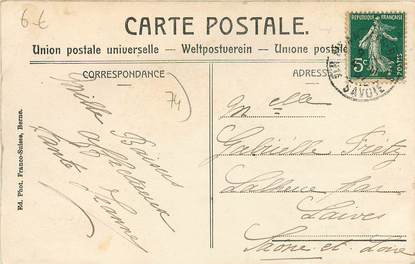 6 €
CARTE POSTALE.
Union postale universelle — Weltpostverein — Unione postale
CORRESPONDANCE
ADRESSE
REPUBLIQUE FRANÇAISE
5c
POSTES
SAVOIE
74
Mille Baisers
affectueux
Tante Jeanne
Melle
Gabrielle Fretz
par
Laives
Saône et Loire
Ed. Phot. Franco-Suisse, Berne.